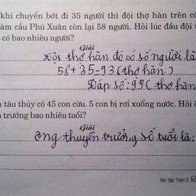 khi chuyển bớt đi 35 người thì đội thợ hàn trên
làm cầu Phú Xuân còn lại 58 người. Hỏi lúc đầu đội
có bao nhiêu người?
Giải
Đội thợ hàn đó có số người là
58 + 35 = 93 (thợ hàn)
Đáp số: 93 (thợ hàn)
tàu thủy có 45 con cừu. 5 con bị rơi xuống nước. Hỏi
trưởng bao nhiêu tuổi?
Giải
Ông thuyền trưởng số tuổi là:
Bài tập Toán 2